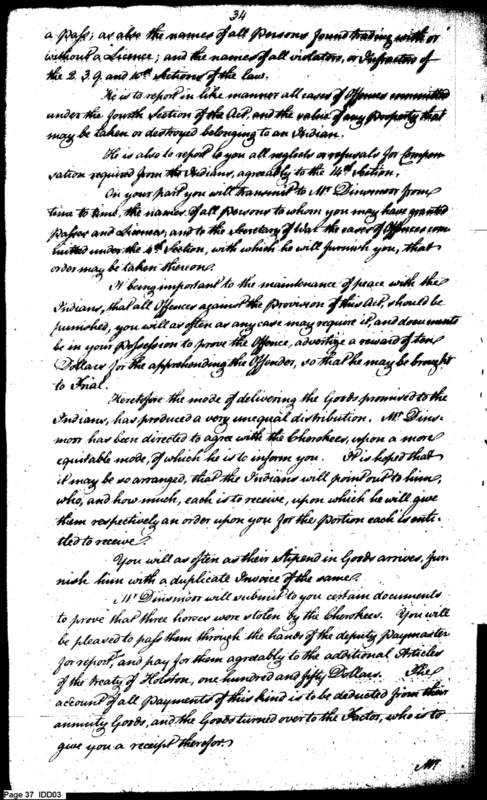 34
a Pass; as also the names of all Persons found trading with or
without a Licence; and the names of all violators, or Infractors of
the 2. 3. 9. and 10th Sections of the law.
He is to report in like manner all cases of Offences committed
under the fourth Section of the Act, and the value of any Property that
may be taken or destroyed belonging to an Indian.
He is also to report to you all neglects or refusals for Compen-
sation required from the Indians, agreeably to the 14th Section.
On your part you will transmit to Mr Dinsmoor from
time to time, the names of all Persons to whom you may have granted
Passes and Licences, and to the Secretary of War the cases of Offences com-
mitted under the 4th Section, with which he will furnish you, that
order may be taken thereon.
It being important to the maintenance of peace with the
Indians, that all Offences against the Provision of this Act, should be
punished, you will as often as any case may require it, and documents
be in your Possession to prove the Offence, advertize a reward of ten
Dollars for the apprehending the Offender, so that he may be brought
to Trial.
Heretofore the mode of delivering the Goods promised to the
Indians, has produced a very unequal distribution. Mr Dins-
moor has been directed to agree with the Cherokees, upon a more
equitable mode, of which he is to inform you. It is hoped that
it may be so arranged, that the Indians will point out to him,
who, and how much, each is to receive, upon which he will give
them respectively an order upon you for the Portion each is enti-
tled to receive.
You will as often as their Stipend in Goods arrives, fur-
nish him with a duplicate Invoice of the same.
Mr Dinsmoor will submit to you certain documents
to prove that three horses were stolen by the Cherokees. You will
be pleased to pass them through the hands of the deputy Paymaster
for report, and pay for them agreeably to the additional Articles
of the treaty of Holston, one hundred and fifty Dollars. The
account of all Payments of this kind is to be deducted from their
annuity Goods, and the Goods turned over to the Factor, who is to
give you a receipt therefor.
Mr
Page 37 IDD03